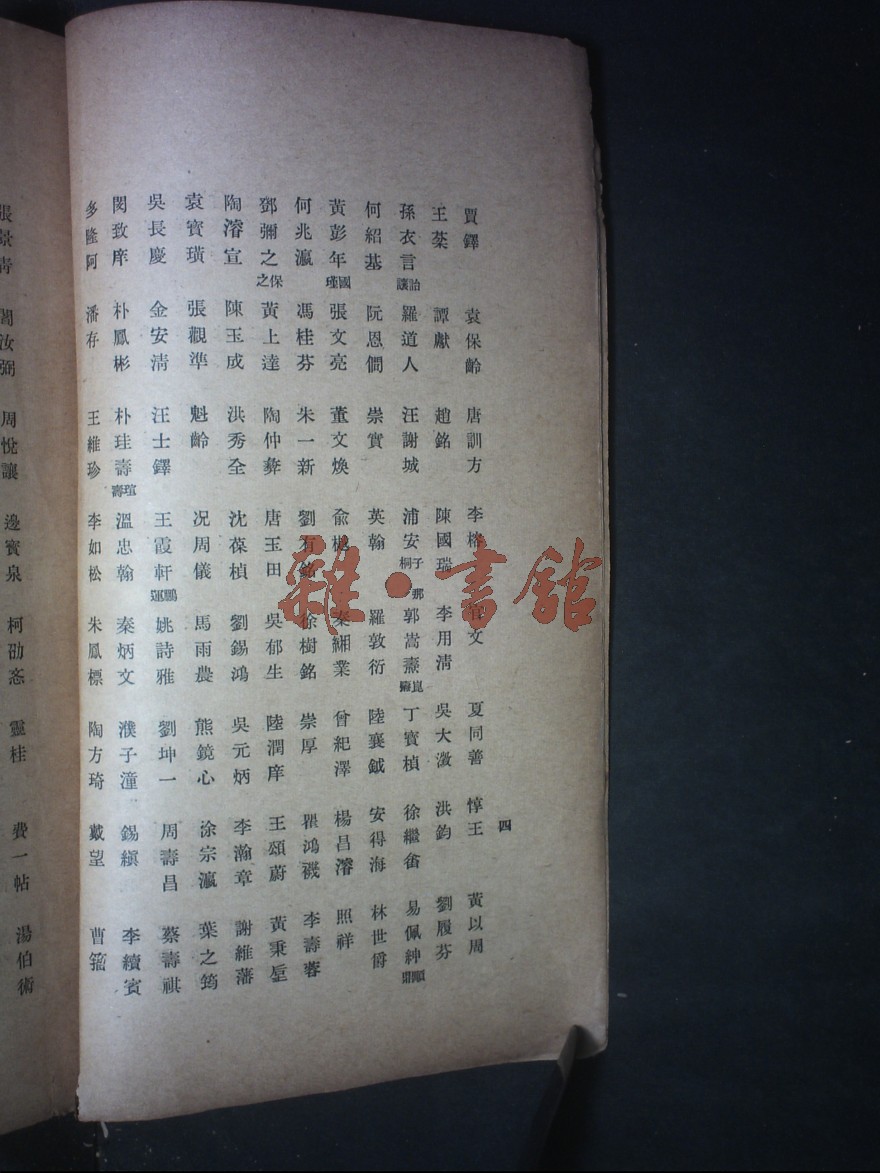 賈鐸 袁保齡 唐訓方 李榕 官文 夏同善 惇王 黃以周
王棻 譚獻 趙銘 陳國瑞 李用清 吳大澂 洪鈞 劉履芬
孫衣言詒讓 羅道人 汪謝城 浦安子桐那 郭嵩燾崑燾 丁寶楨 徐繼畬 易佩紳順鼎
何紹基 阮恩僩 崇實 英翰 羅敦衍 陸襄鉞 安得海 林世爵
黃彭年國瑾 張文亮 董文煥 俞樾 秦緗業 曾紀澤 楊昌濬 照祥
何兆瀛 馮桂芬 朱一新 劉有銘 徐樹銘 崇厚 瞿鴻禨 李壽蓉
鄧彌之保之 黃上達 陶仲彝 唐玉田 吳郁生 陸潤庠 王頌蔚 黃秉垕
陶濬宣 陳玉成 洪秀全 沈葆楨 劉錫鴻 吳元炳 李瀚章 謝維藩
袁寶璜 張觀準 魁齡 況周儀 馬雨農 熊鏡心 涂宗瀛 葉之筠
吳長慶 金安清 汪士鐸 王霞軒鵬運 姚詩雅 劉坤一 周壽昌 蔡壽祺
閔致庠 朴鳳彬 朴珪壽瑄壽 溫忠翰 秦炳文 濮子潼 錫縝 李續賓
多隆阿 潘存 王維珍 李如松 朱鳳標 陶方琦 戴望 曹籀
四
閻汝弼 周悅讓 邊寶泉 柯劭忞 靈桂 費一帖 湯伯術
雜·書館